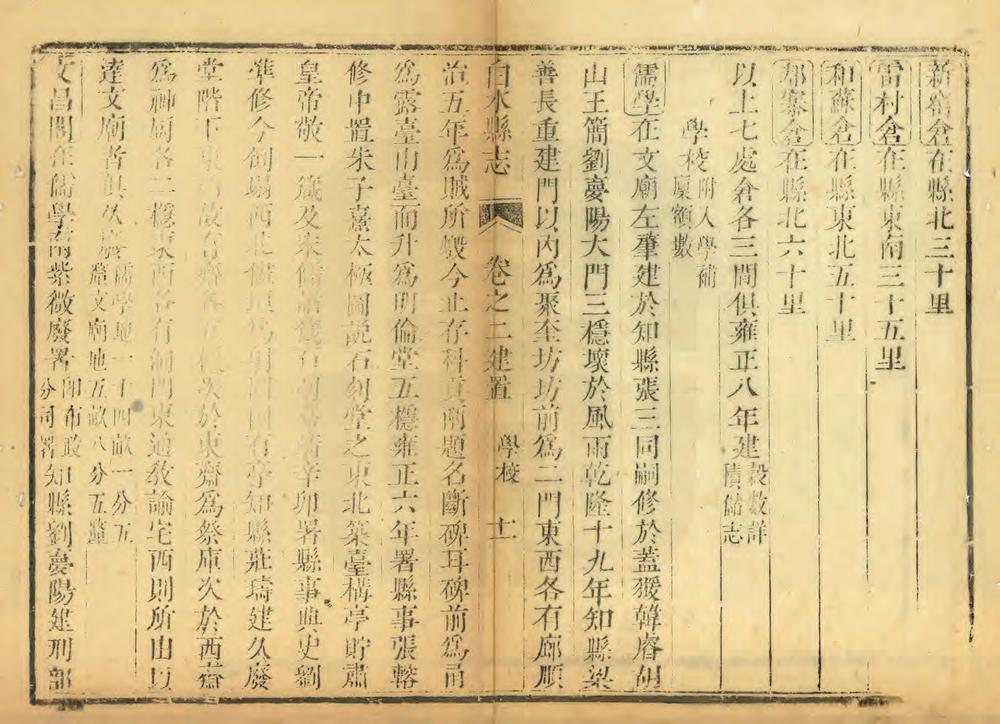 新窑倉在縣北三十里
雷村倉在縣東南三十五里
和蘇倉在縣東北五十里
鄈寨倉在縣北六十里
以上七處倉各三間俱雍正八年建穀數詳積儲志
學校附入學補廩額數
儒學在文廟左肇建於知縣張三同嗣修於蓋獲韓睿胡
山王簡劉夢陽大門三穩壞於風雨乾隆十九年知縣梁
善長重建門以內為聚奎坊坊前為二門東西各有廊順
白水縣志 卷之二建置 學校 十一
治五年為賊所燬今止存科貢兩題名斷碑耳碑前為甬
為露臺由臺而升為明倫堂五穩雍正六年署縣事張輅
修中置朱子熹太極圖說石刻堂之東北築臺構亭貯肅
皇帝敬一箴及宋儒辛卯署縣事典史劉
肇修今圮西北亭知縣莊璹建久廢
堂階下東西次於東齋為祭庫次於西齋
為神廚各二穩東西各有洞門東通敎諭宅西則所由以
達文廟者俱久廢儒學地一十四畝一分五釐文廟地五畝八分五釐
文昌閣在儒學南紫薇廢署即布政分司署知縣劉夢陽建刑部